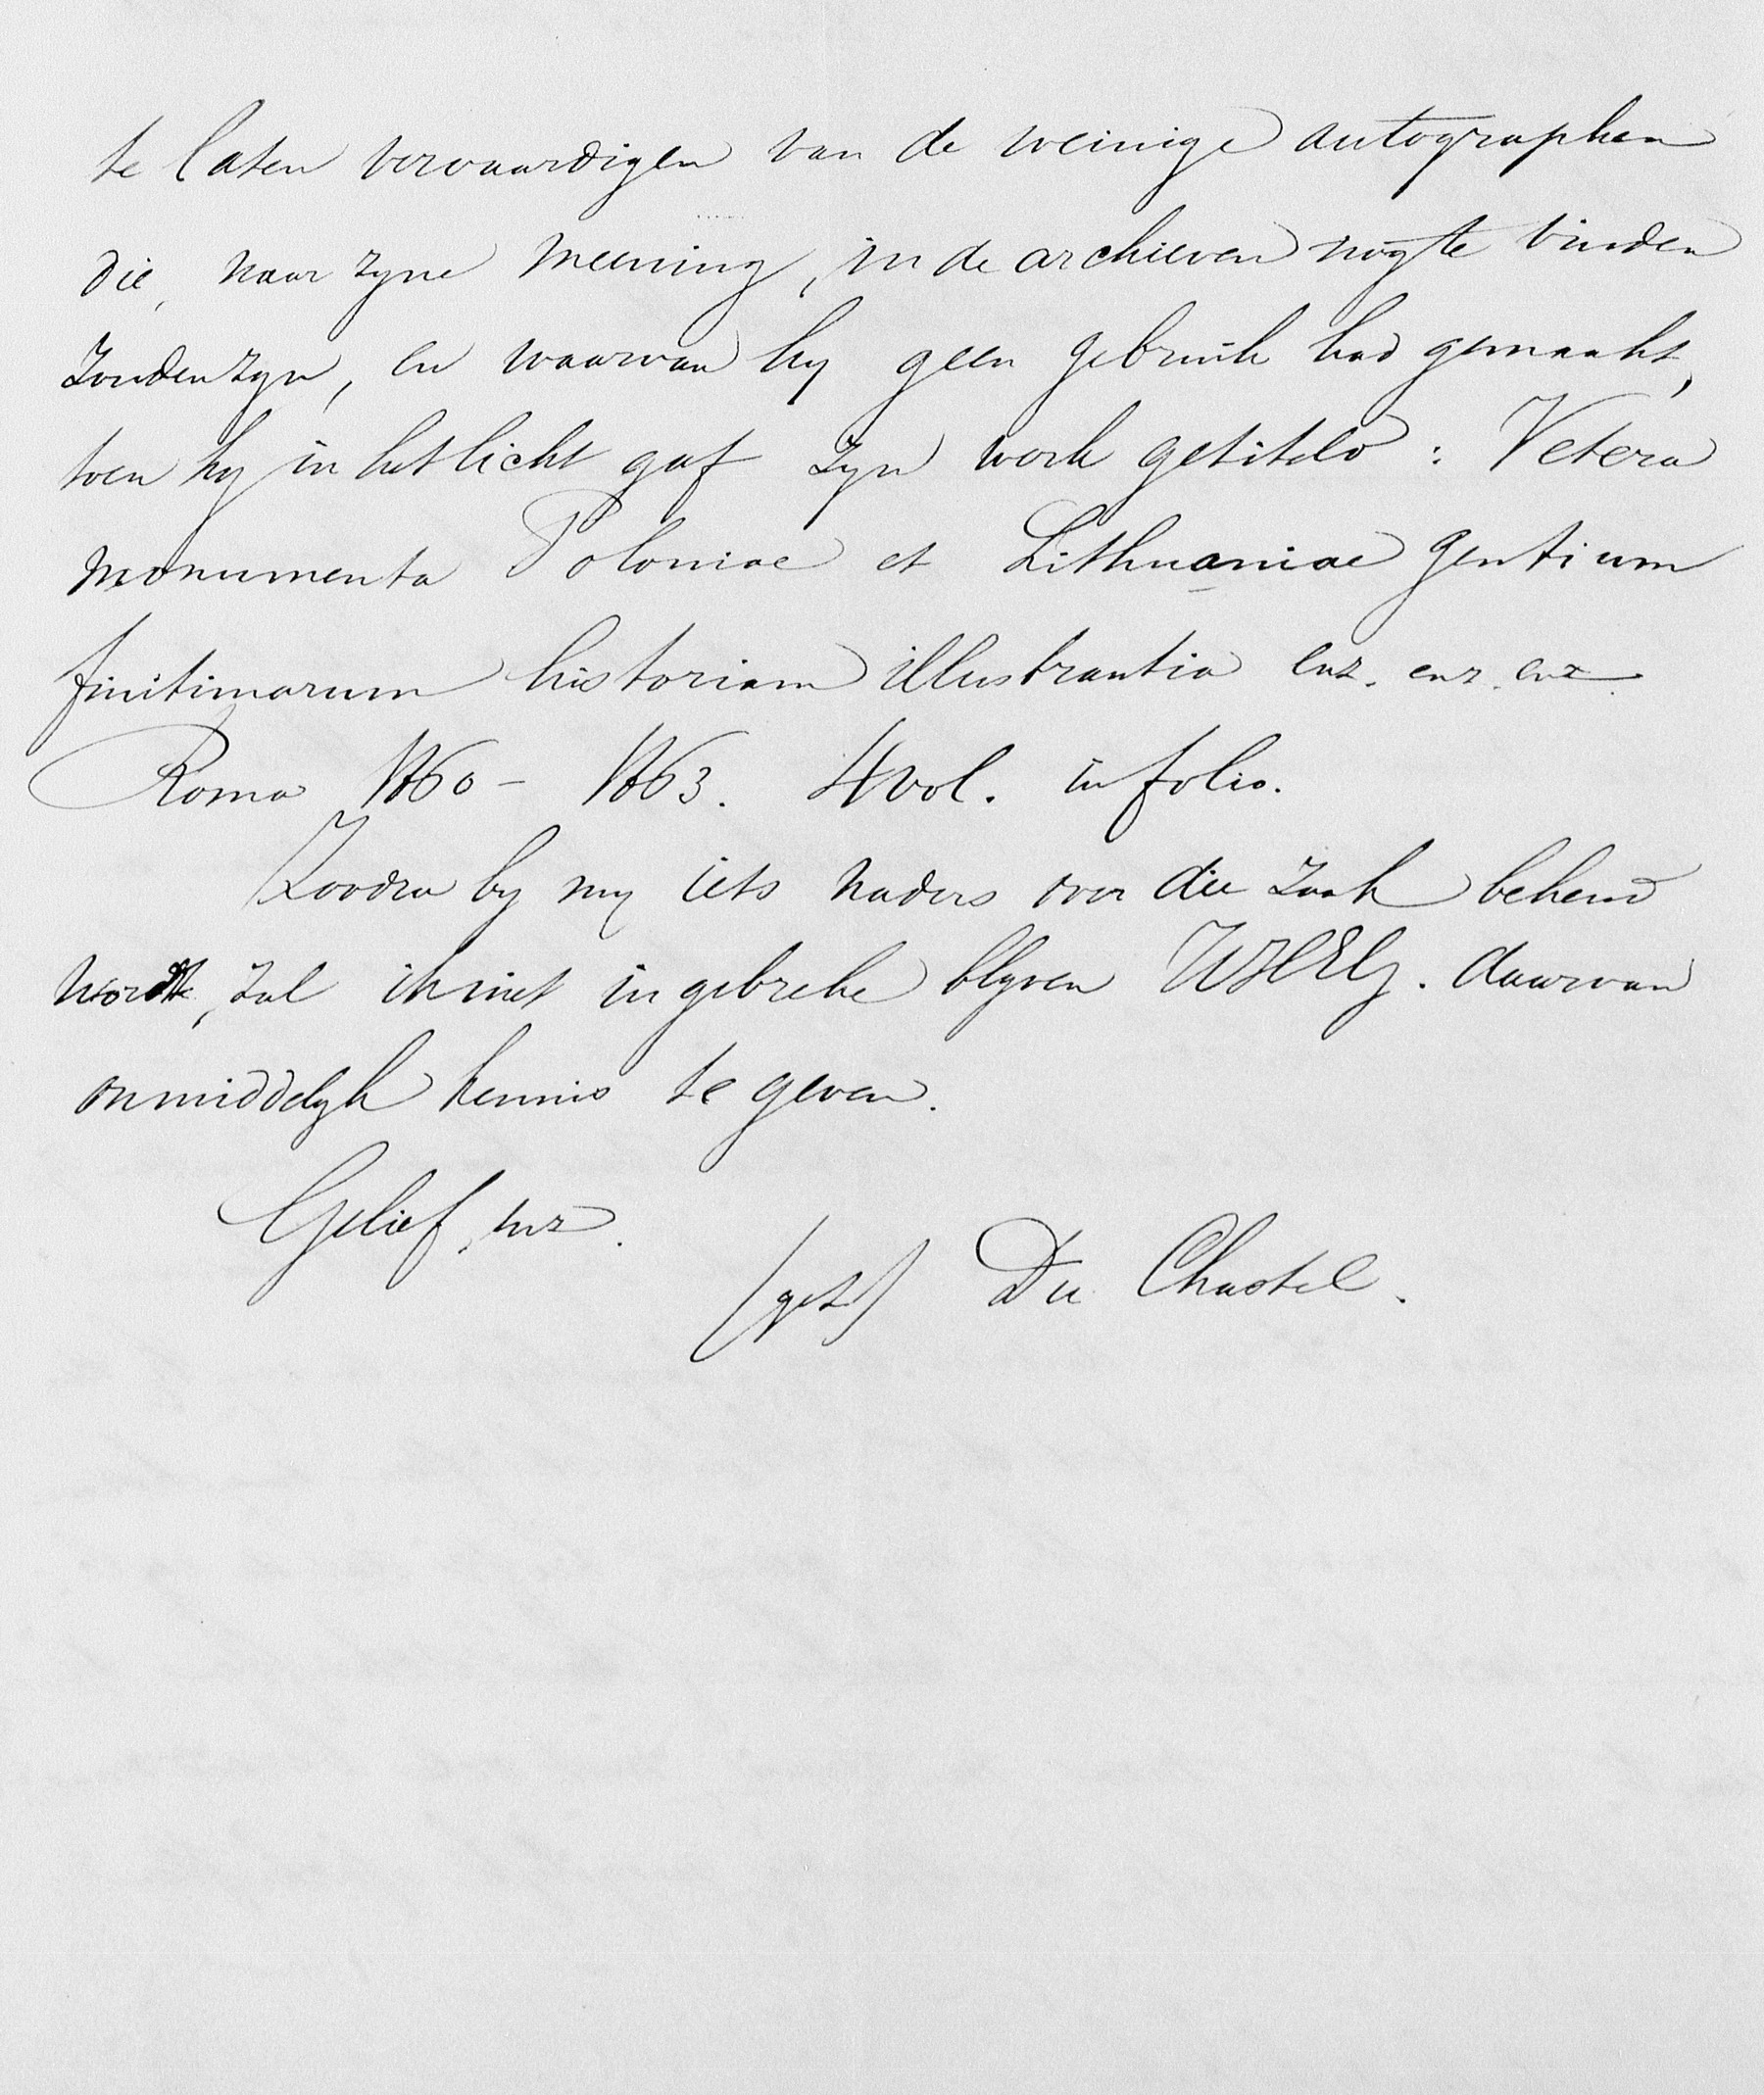 te laten vervaardigen van de weinige autographen
die, naar zyne meening, in de archieven nog te vinden
zouden zyn, en waarvan hy geen gebruik had gemaakt,
toen hy in het licht gaf zyn werk getiteld : Vetera
monumenta Poloniae et Lithuaniae gentium
finitimarum historiam illustrantia enz. enz. enz.
Roma 1860 - 1863. 4 vol. in folio.
Zoodra by my iets naders over die zaak bekend
wordt, zal ik niet in gebreke blyven UHEG. daarvan
onmiddelyk kennis te geven.
Gelief, enz.
(get) Du Chastel.